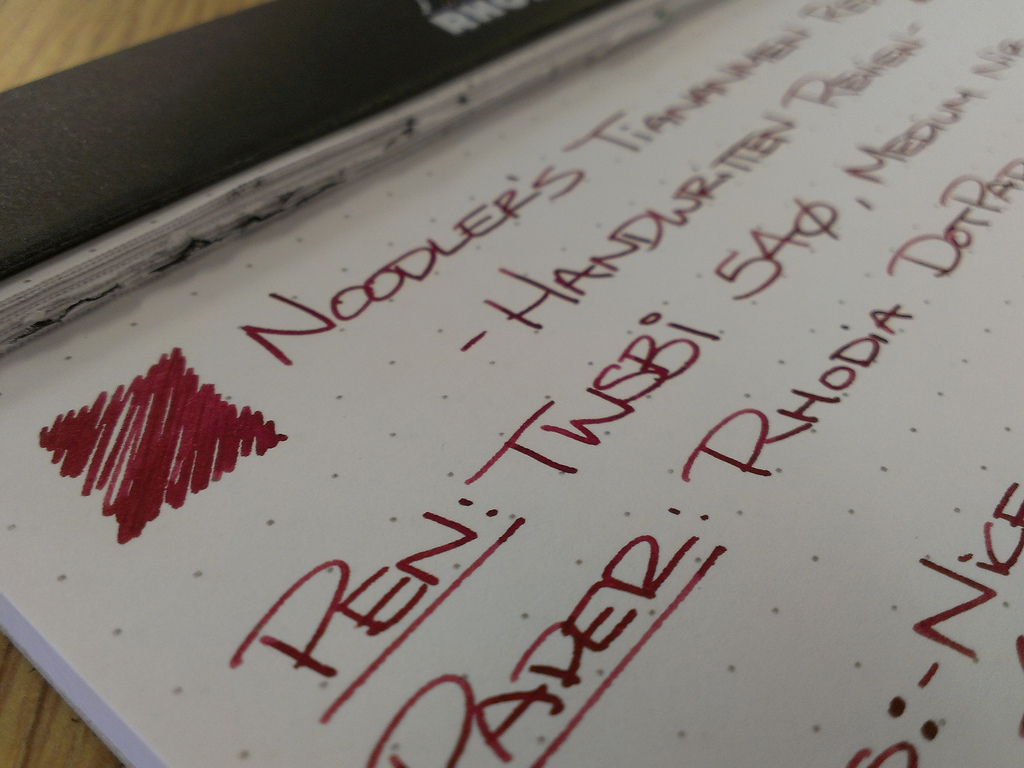 NOODLER'S TIANANMEN RED
- HANDWRITTEN REVIEW -
PEN: TWSBI 540, MEDIUM NIB
PAPER: RHODIA DOTPAD
:- NICE